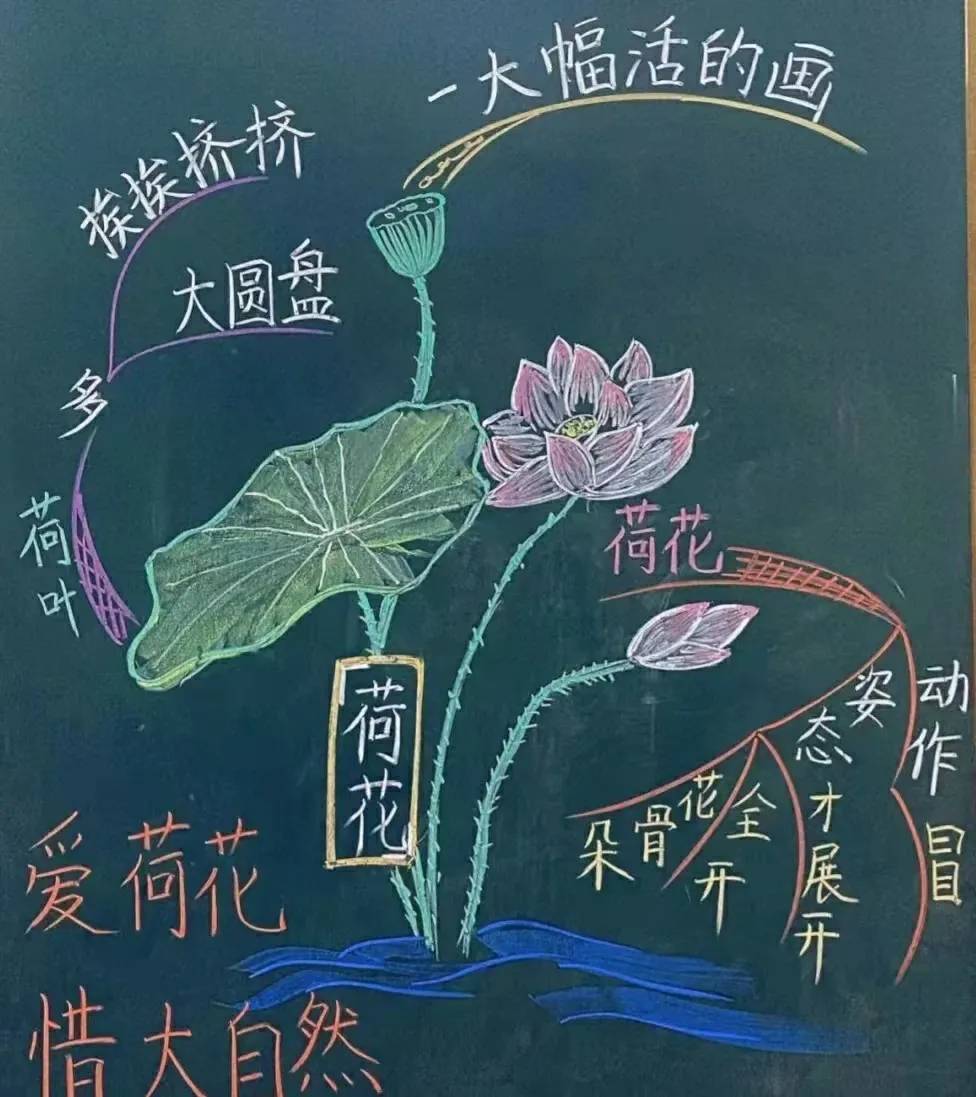 一大幅活的画
挨挨挤挤
大圆盘
多
荷叶
荷花
荷花
动作
冒
姿态
才展开
全开
花骨朵
爱荷花
惜大自然